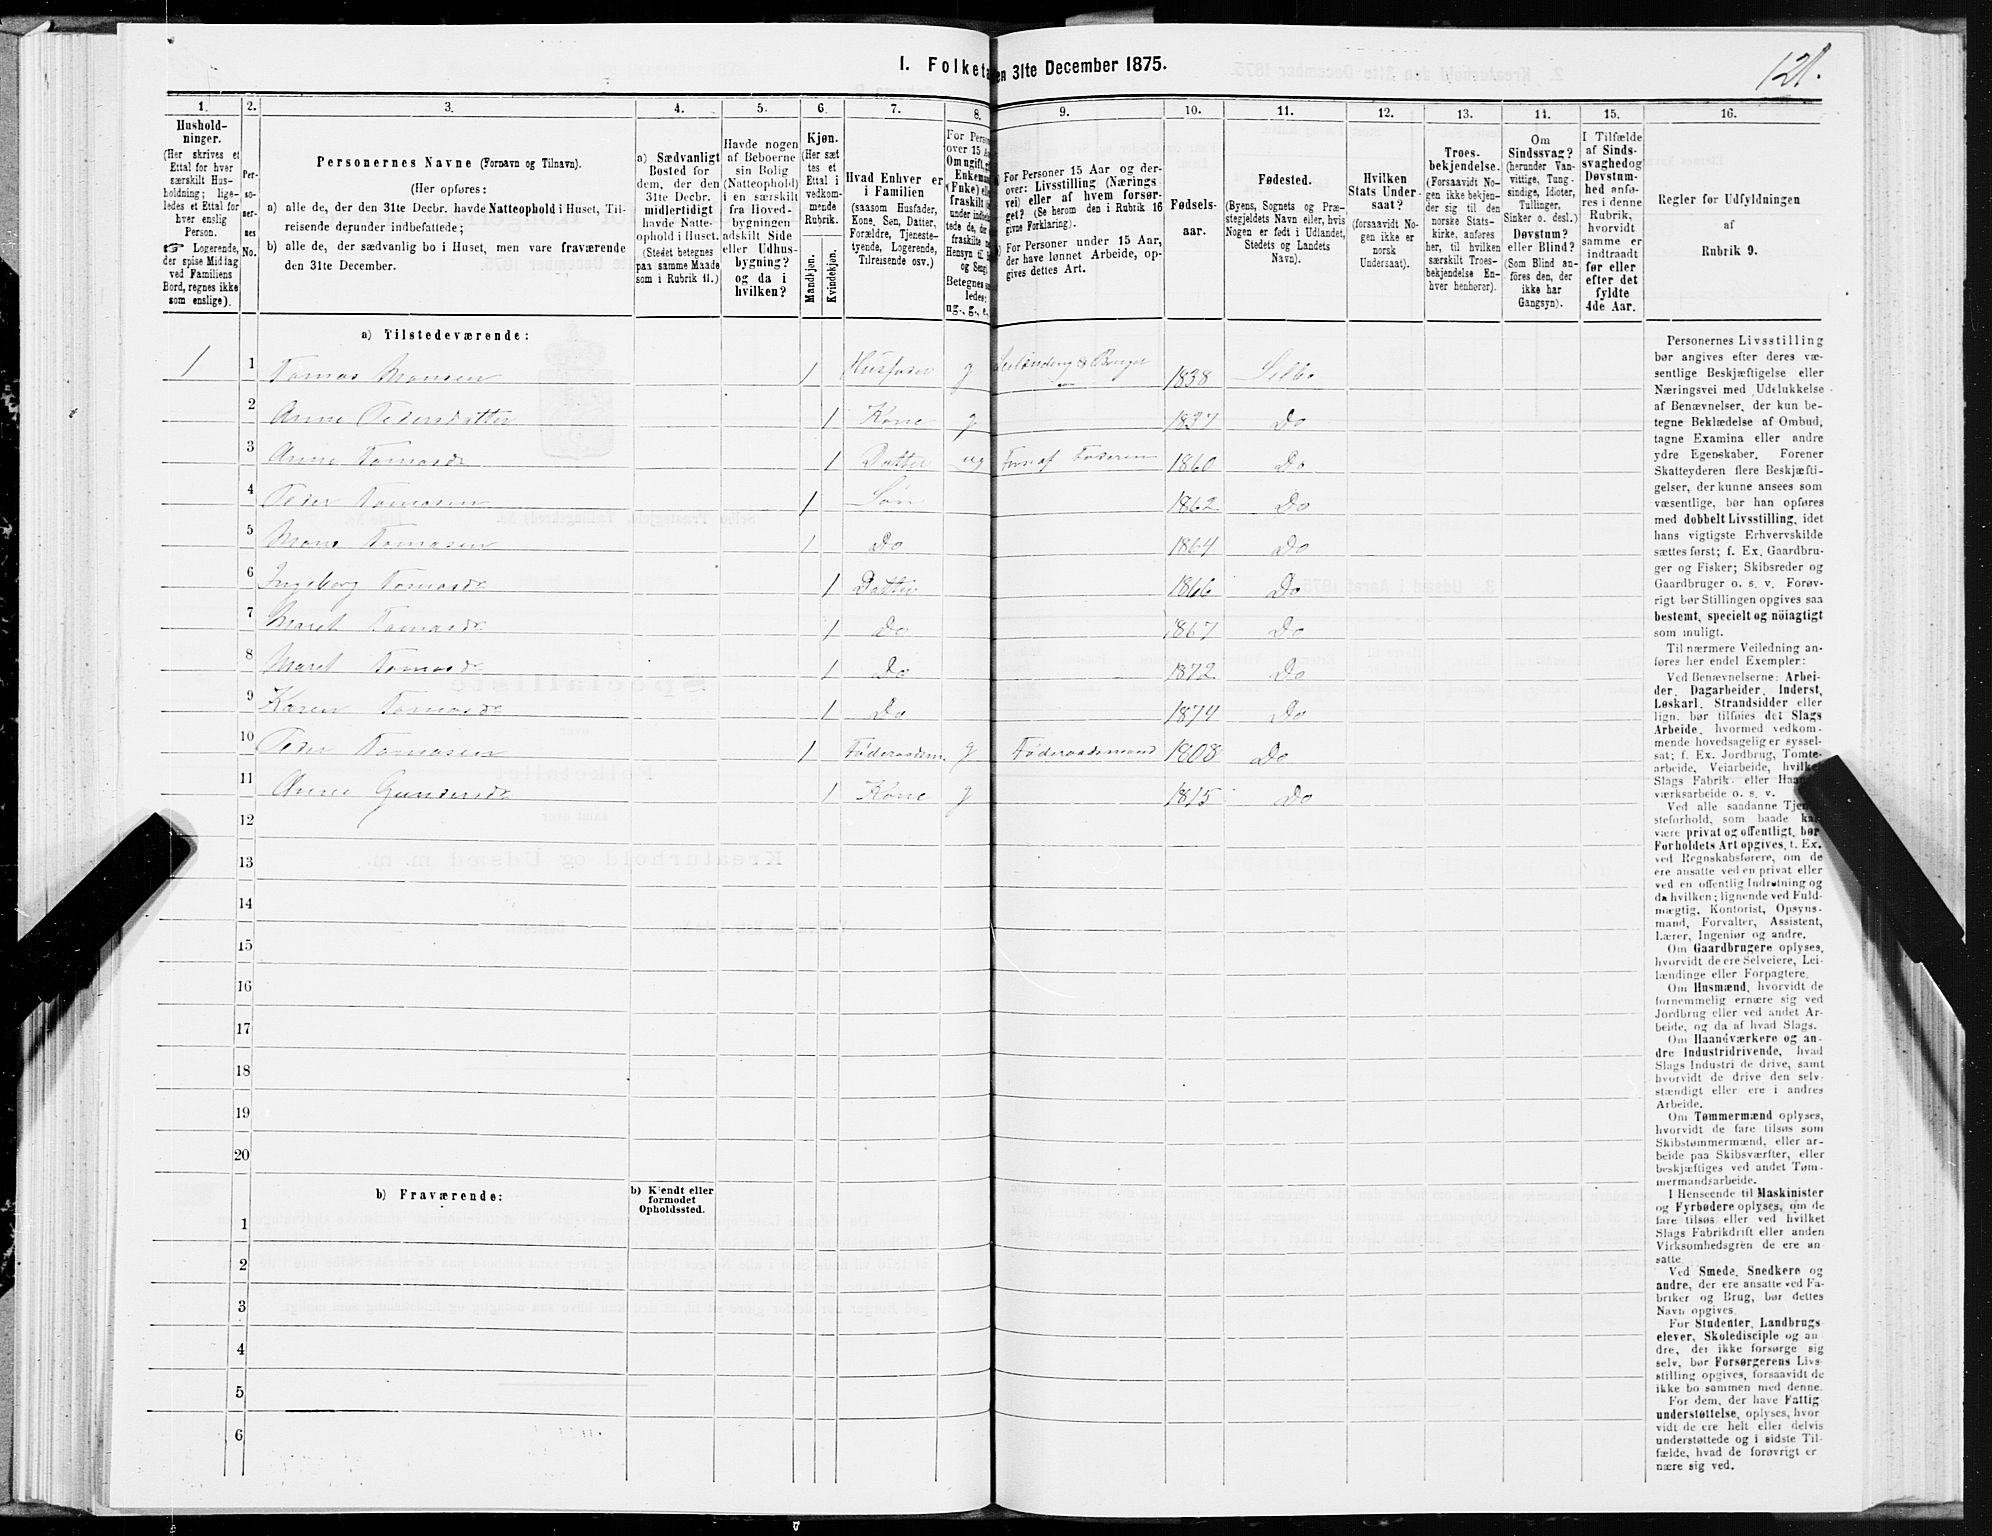 121.
I. Folketa en 31te December 1875.
1. 2. 3. 4. 5. 6. 7. 8. 9. 10. 11. 12. 13. 14. 15. 16.
Hushold-
ninger.
(Her skrives et
Ettal for hver
særskilt Hus-
holdning; lige-
ledes et Ettal for
hver enslig
Person.
☞ Logerende,
der spise Middag
ved Familiens
Bord, regnes ikke
som enslige).
Per-
so-
ner-
nes
No.
Personernes Navne (Fornavn og Tilnavn).
(Her opføres:
a) alle de, der den 31te Decbr. havde Natteophold i Huset, Til-
reisende derunder indbefattede;
b) alle de, der sædvanlig bo i Huset, men vare fraværende
den 31te December.
a) Sædvanligt
Bosted for
dem, der den
31te Decbr.
midlertidigt
havde Natte-
ophold i Huset.
(Stedet betegnes
paa samme Maade
som i Rubrik 11.)
Havde nogen
af Beboerne
sin Bolig
(Natteophold)
i en særskilt
fra Hoved-
bygningen
adskilt Side
eller Udhus-
bygning?
og da i
hvilken?
Kjøn.
(Her sæt
tes et
Ettal i
vedkom-
mende
Rubrik.
Mandkjøn.
Kvindekjøn.
Hvad Enhver er
i Familien
(saasom Husfader,
Kone, Søn, Datter,
Forældre, Tjeneste-
tyende, Logerende,
Tilreisende osv.)
For Person
over 15 Aa
Om ugift, g
Enkema
(Enke) el
fraskilt
under indbe
tede de, d
fraskilte
Hensyn til
og Seng
Betegnes s
ledes:
ug., g., e.,
For Personer 15 Aar og der-
over: Livsstilling (Nærings
vei) eller af hvem forsør-
get? (Se herom den i Rubrik 16
givne Forklaring).
For Personer under 15 Aar,
der have lønnet Arbeide, op-
gives dettes Art.
Fødsels-
aar.
Fødested.
(Byens, Sognets og Præ-
stegjeldets Navn eller, hvis
Nogen er født i Udlandet,
Stedets og Landets
Navn).
Hvilken
Stats Under-
saat?
(forsaavidt No-
gen ikke er
norsk
Undersaat).
Troes-
bekjendelse.
(Forsaavidt No-
gen ikke bekjen-
der sig til den
norske Stats-
kirke, anføres
her, til hvilken
særskilt Troes-
bekjendelse En-
hver henhører).
Om
Sindssvag?
(herunder Van-
vittige, Tung-
sindige, Idioter,
Tullinger,
Sinker o. desl.)
Døvstum?
eller Blind?
(Som Blind an-
føres den, der
ikke har
Gangsyn).
I Tilfælde
af Sinds-
svaghedog
Døvstum-
hed anfø-
res i denne
Rubrik,
hvorvidt
samme er
indtraadt
før eller
efter det
fyldte
4de Aar.
Regler for Udfyldningen
af
Rubrik 9.
a) Tilstedeværende:
1 1 Tomas Monsen 1 Husfader g 1838 Selbo
2 Anne Pedersdatter 1 Kone g 1837 Do
3 Anne Tomasd 1 Datter ug Fors af Faderen 1860 Do
4 Peder Tomasen 1 Søn 1862 Do
5 Mons Tomasen 1 Do 1864 Do
6 Ingeborg Tomasd 1 Datter 1866 Do
7 Maret Tomasd 1 Do 1867 Do
8 Maret Tomasd 1 Do 1872 Do
9 Karen Tomasd 1 Do 1874 Do
10 Peder Tomasen 1 Føderaadsm. g Føderaadsmand 1808 Do
11 Anne Gundersd 1 Kone g 1815 Do
12
13
14
15
16
17
18
19
20
b) Fraværende:
b) Kjendt eller
formodet
Opholdssted.
1
2
3
4
5
6
Personernes Livsstilling
bør angives efter deres væ-
sentlige Beskjæftigelse eller
Næringsvei med Udelukkelse
af Benævnelser, der kun be-
tegne Beklædelse af Ombud,
tagne Examina eller andre
ydre Egenskaber. Forener
Skatteyderen flere Beskjæfti-
gelser, der kunne ansees som
væsentlige, bør han opføres
med dobbelt Livsstilling, idet
hans vigtigste Erhvervskilde
sættes først; f. Ex. Gaardbru-
ger og Fisker; Skibsreder og
Gaardbruger o. s. v. Forøv-
rigt bør Stillingen opgives saa
bestemt, specielt og nöiagtigt
som muligt.
Til nærmere Veiledning an-
føres her endel Exempler:
Ved Benævnelserne: Arbei-
der, Dagarbeider, Inderst,
Løskarl, Strandsidder eller
lign. bør tilføies det Slags
Arbeide, hvormed vedkom-
mende hovedsagelig er syssel-
sat; f. Ex. Jordbrug, Tomte-
arbeide, Veiarbeide, hvilket
Slags Fabrik- eller Haand-
værksarbeide o. s. v.
Ved alle saadanne Tjene-
steforhold, som baade kan
være privat og offentligt, bør
Forholdets Art opgives, f. Ex.
ved Regnskabsførere, om de
ere ansatte ved en privat eller
ved en offentlig Indretning og
da hvilken; lignende ved Fuld-
mægtig, Kontorist, Opsyns-
mand, Forvalter, Assistent,
Lærer, Ingeniør og andre.
Om Gaardbrugere oplyses,
hvorvidt de ere Selveiere, Lei-
lændinge eller Forpagtere.
Om Husmænd, hvorvidt de
fornemmelig ernære sig ved
Jordbrug eller ved andet Ar-
beide, og da af hvad Slags.
Om Haandværkere og an-
dre Industridrivende, hvad
Slags Industri de drive, samt
hvorvidt de drive den selv-
stændigt eller ere i andres
Arbeide.
Om Tømmermænd oplyses,
hvorvidt de fare tilsøs som
Skibstømmermænd, eller ar-
beide paa Skibsværfter, eller
beskjæftiges ved andet Tøm-
mermandsarbeide.
I Henseende til Maskinister
og Fyrbødere oplyses, om de
fare tilsøs eller ved hvilket
Slags Fabrikdrift eller anden
Virksomhedsgren de ere an-
satte.
Ved Smede, Snedkere og
andre, der ere ansatte ved Fa-
briker og Brug, bør dettes
Navn opgives.
For Studenter, Landbrugs-
elever, Skoledisciple og an-
dre, der ikke forsørge sig
selv, bør Forsørgerens Livs-
stilling opgives, forsaavidt de
ikke bo sammen med denne.
For dem, der have Fattig-
understøttelse, oplyses, hvor-
vidt de ere helt eller delvis
understøttede og i sidste Til-
fælde, hvad de forøvrigt er-
nære sig ved.